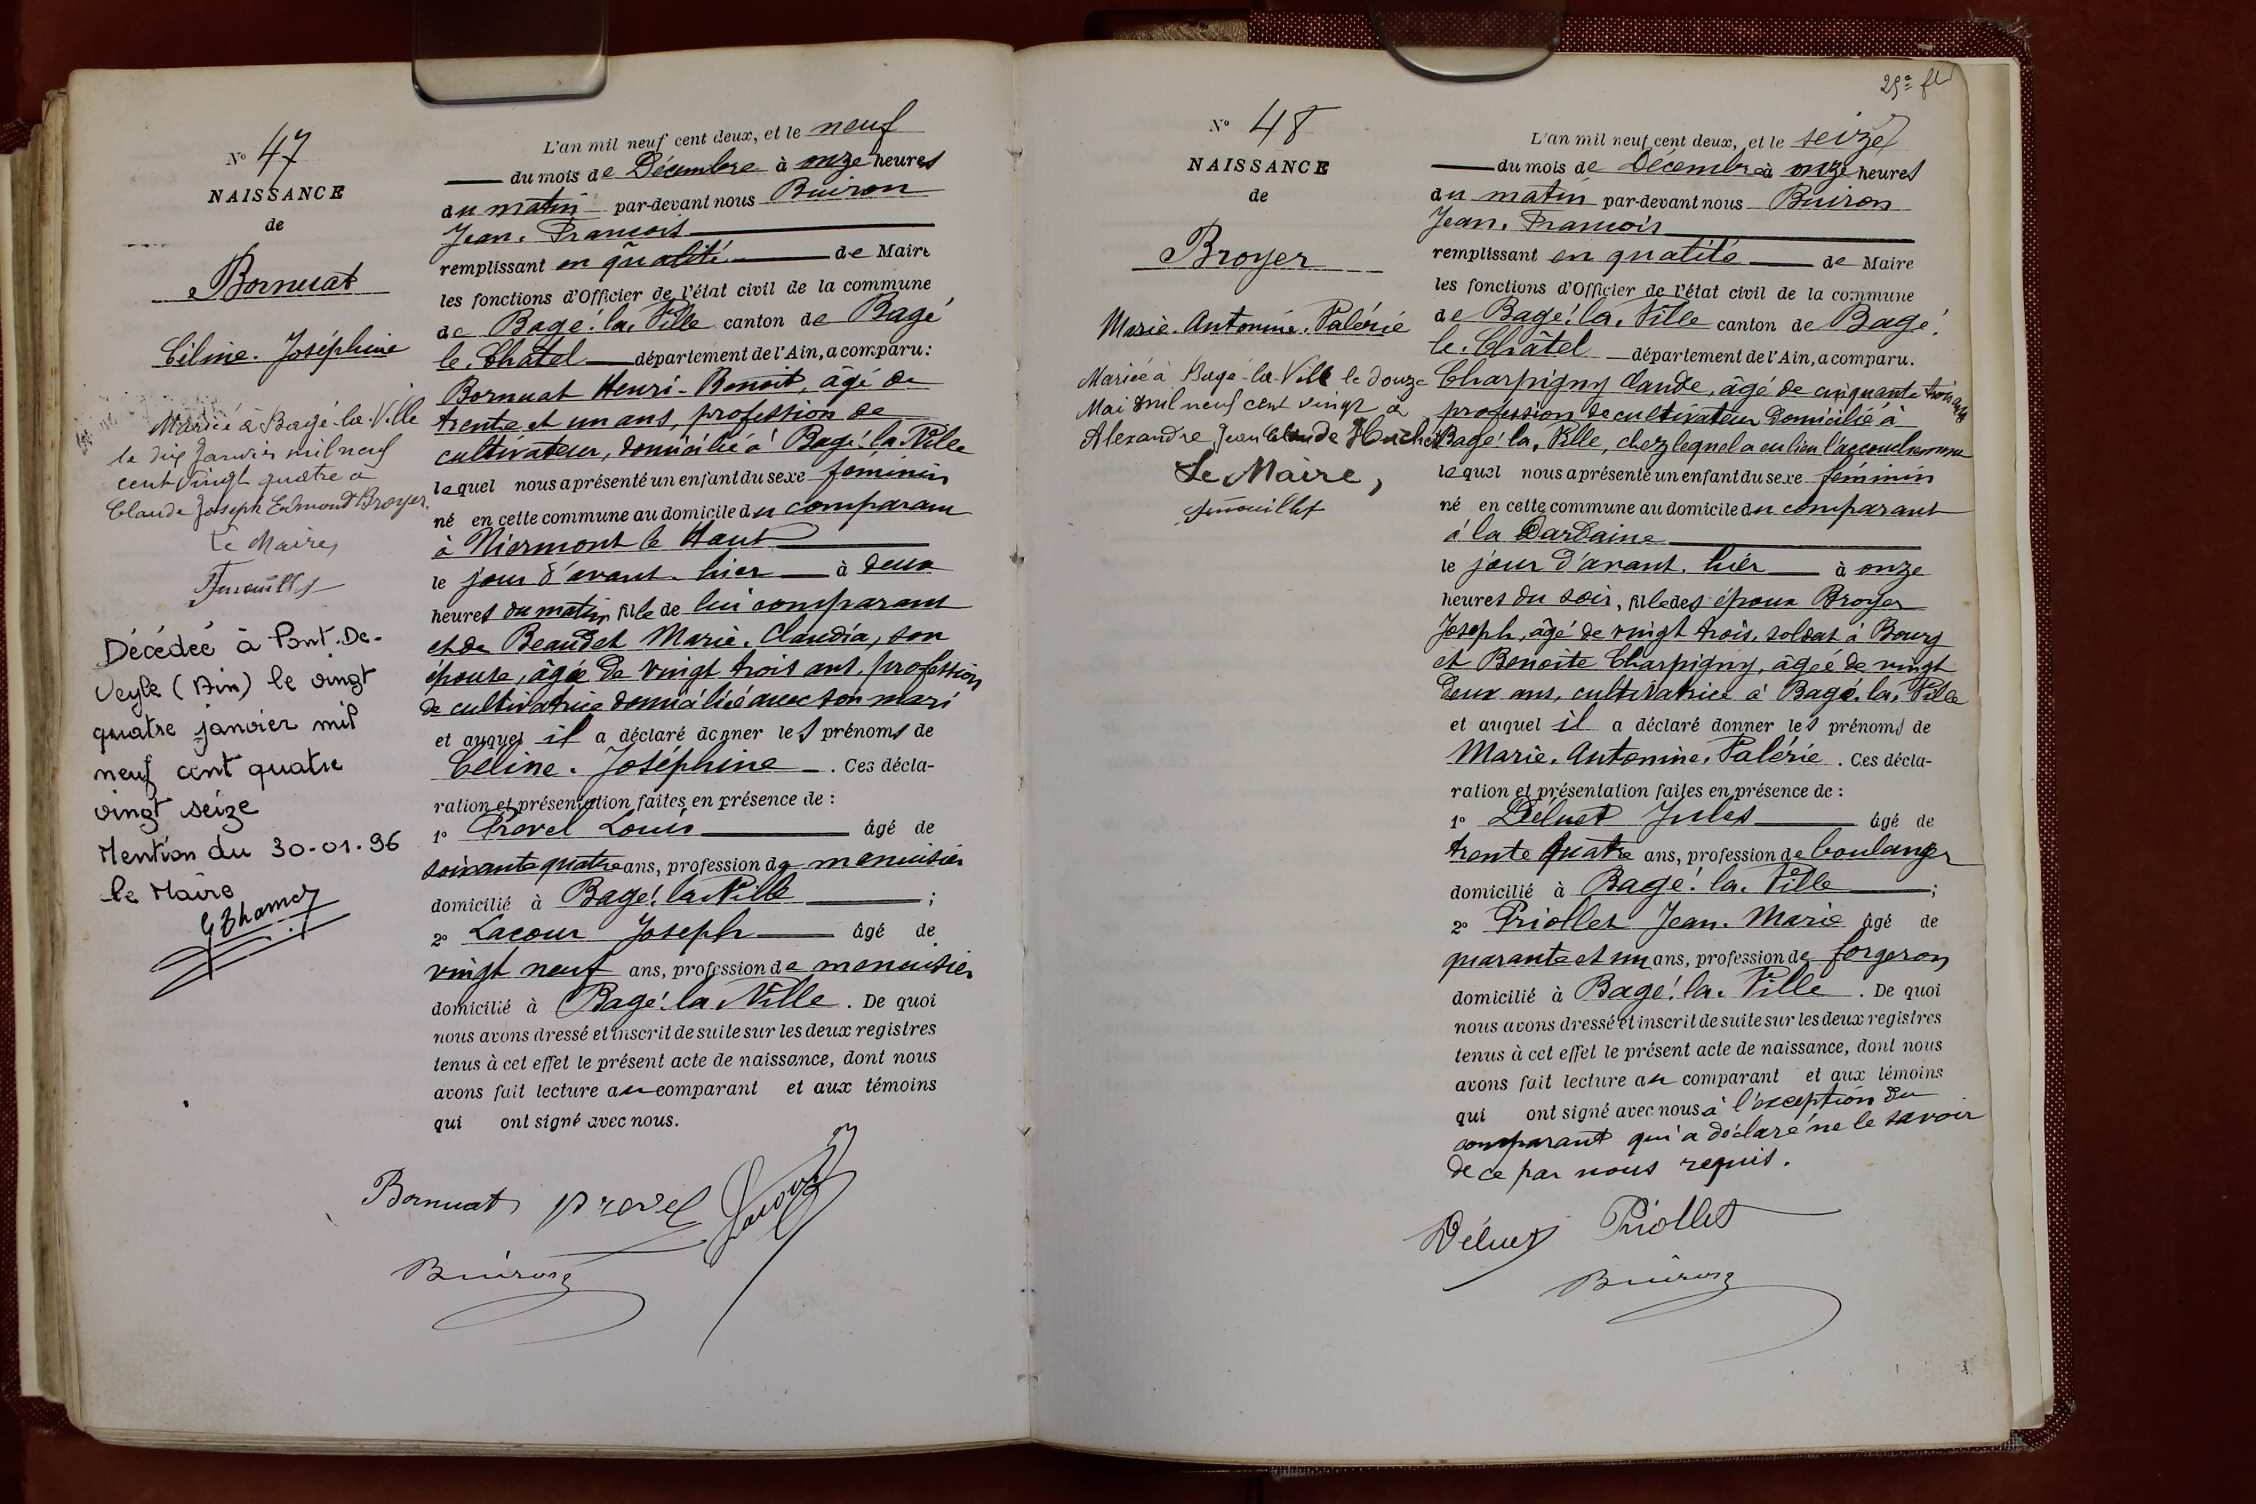 N° 47
NAISSANCE
de
Bornuat
Céline. Joséphine
Mariée à Bagé-la-Ville
le dix Janvier mil neuf
cent vingt quatre à
Claude Joseph Edmond Broyer.
Le Maire,
Décédée à Pont-De-
Veyle (Ain) le vingt
quatre janvier mil
neuf cent quatre
vingt seize
Mention du 30-01-96
le Maire
L'an mil neuf cent deux, et le neuf
du mois de Décembre à onze heures
du matin par-devant nous Buiron
Jean. François
remplissant en qualité de Maire
les fonctions d'Officier de l'état civil de la commune
de Bagé-la-Ville canton de Bagé
le. Châtel département de l'Ain, a comparu:
Bornuat Henri-Benoit, âgé de
trente et un ans, profession de
cultivateur, domicilié à Bagé-la Ville
lequel nous a présenté un enfant du sexe féminin
né en cette commune au domicile du comparant
à Niermont le Haut
le jour d'avant. hier à deux
heures du matin, fille de lui comparant
et de Beaudet Marie. Claudia, son
épouse, âgée de vingt trois ans, profession
de cultivatrice domiciliée avec son mari
et auquel il a déclaré donner les prénoms de
Céline. Joséphine. Ces décla-
ration et présentation faites en présence de:
1° Provel Louis âgé de
soixante quatre ans, profession de menuisier
domicilié à Bagé-la Ville;
2° Lacour Joseph âgé de
vingt neuf ans, profession de menuisier
domicilié à Bagé-la Ville. De quoi
nous avons dressé et inscrit de suite sur les deux registres
tenus à cet effet le présent acte de naissance, dont nous
avons fait lecture au comparant et aux témoins
qui ont signé avec nous.
Bornuat Provel Lacour
Buiron
25e ft
N° 48
NAISSANCE
de
Broyer
Marie. Antonine. Valérie
Mariée à Bagé-la-Ville le douze
Mai mil neuf cent vingt à
Alexandre Jean Claude
Le Maire,
L'an mil neuf cent deux, et le seize
du mois de Décembre à onze heures
du matin par-devant nous Buiron
Jean. François
remplissant en qualité de Maire
les fonctions d'Officier de l'état civil de la commune
de Bagé-la. Ville canton de Bagé.
le. Châtel département de l'Ain, a comparu.
Charpigny Claude, âgé de cinquante trois ans
profession de cultivateur domicilié à
Bagé-la. Ville, chez lequel a eu lieu l'accouchement
lequel nous a présenté un enfant du sexe féminin
né en cette commune au domicile du comparant
à la Dardaine
le jour d'avant. hier à onze
heures du soir, fille des époux Broyer
Joseph, âgé de vingt trois, soldat à Bourg
et Benoite Charpigny, âgée de vingt
deux ans, cultivatrice à Bagé. la. Ville
et auquel il a déclaré donner les prénoms de
Marie. Antonine. Valérie. Ces décla-
ration et présentation faites en présence de:
1° Déluet Jules âgé de
trente quatre ans, profession de boulanger
domicilié à Bagé-la. Ville;
2° Priollet Jean. Marie âgé de
quarante et un ans, profession de forgeron
domicilié à Bagé-la. Ville. De quoi
nous avons dressé et inscrit de suite sur les deux registres
tenus à cet effet le présent acte de naissance, dont nous
avons fait lecture au comparant et aux témoins
qui ont signé avec nous à l'exception du
comparant qui a déclaré ne le savoir
de ce par nous requis.
Déluet Priollet
Buiron